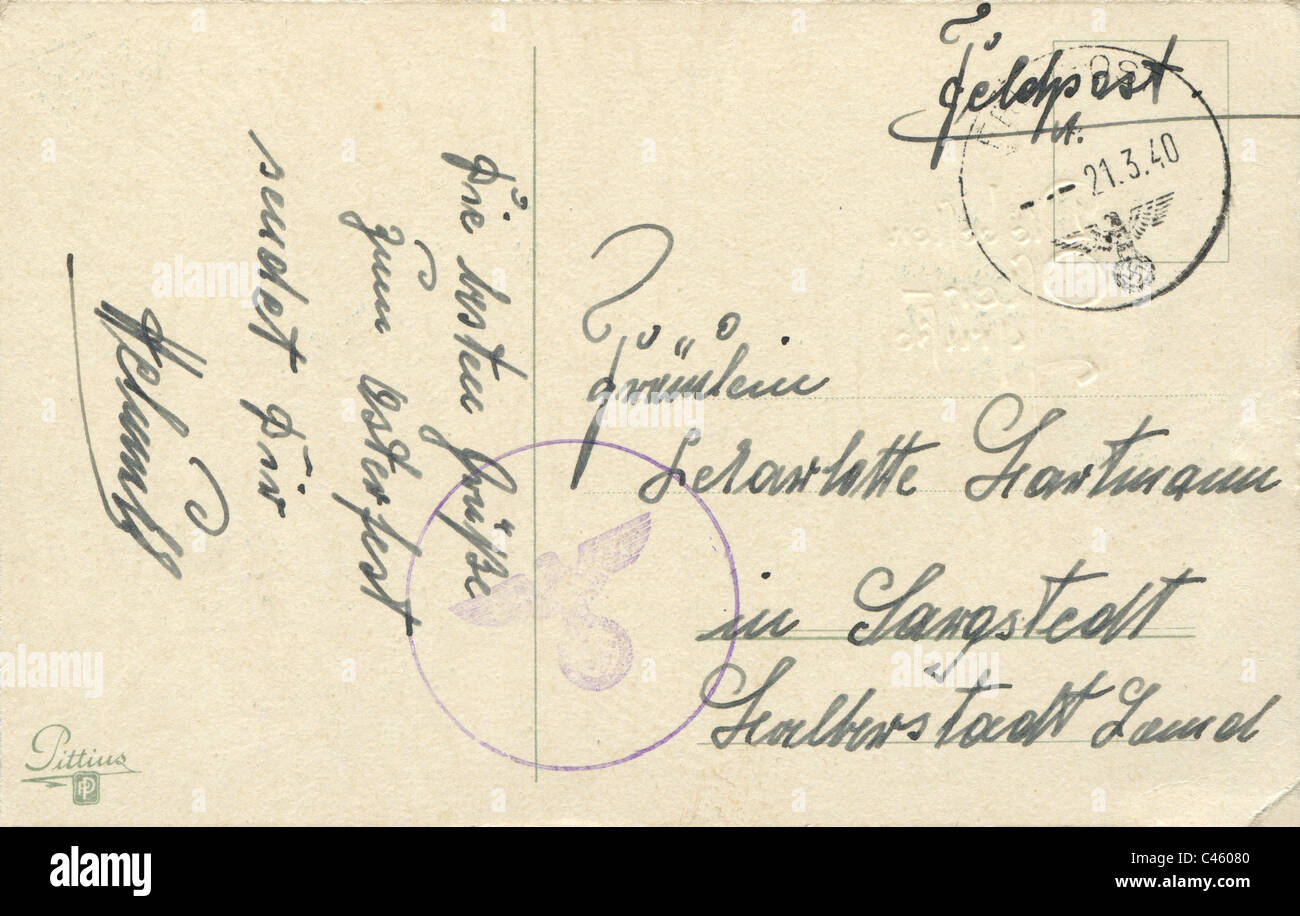 Feldpost.
FELDPOST
21.3.40
Die besten Grüße
zum Osterfest
sendet Dir
Helmuth
Fräulein
Scharlotte Hartmann
in Sargstedt
Halberstadt Land
Pittius
PP
alamy
Image ID: C46080
www.alamy.com